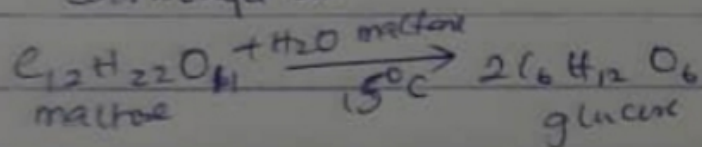 C12H22O11 + H2O maltose → 2C6H12O6
15°C
maltose glucose